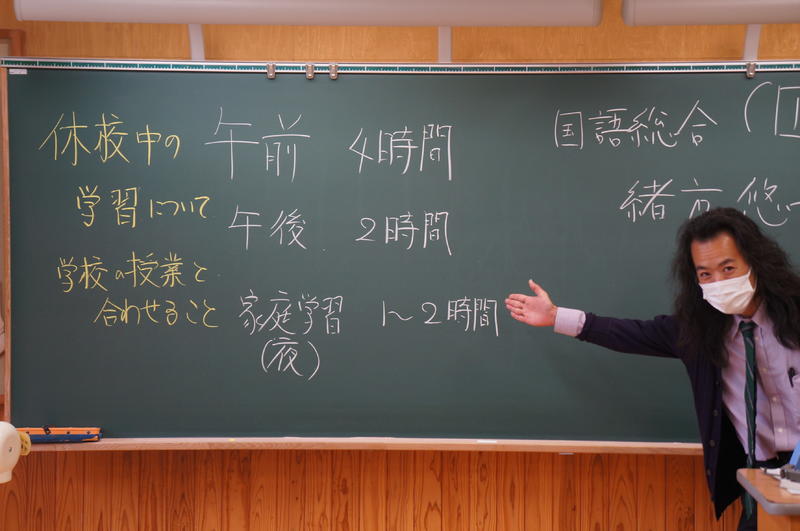 休校中の
学習について
学校の授業と
合わせること
午前 4時間
午後 2時間
家庭学習 1〜2時間
(夜)
国語総合(国
緒方 悠